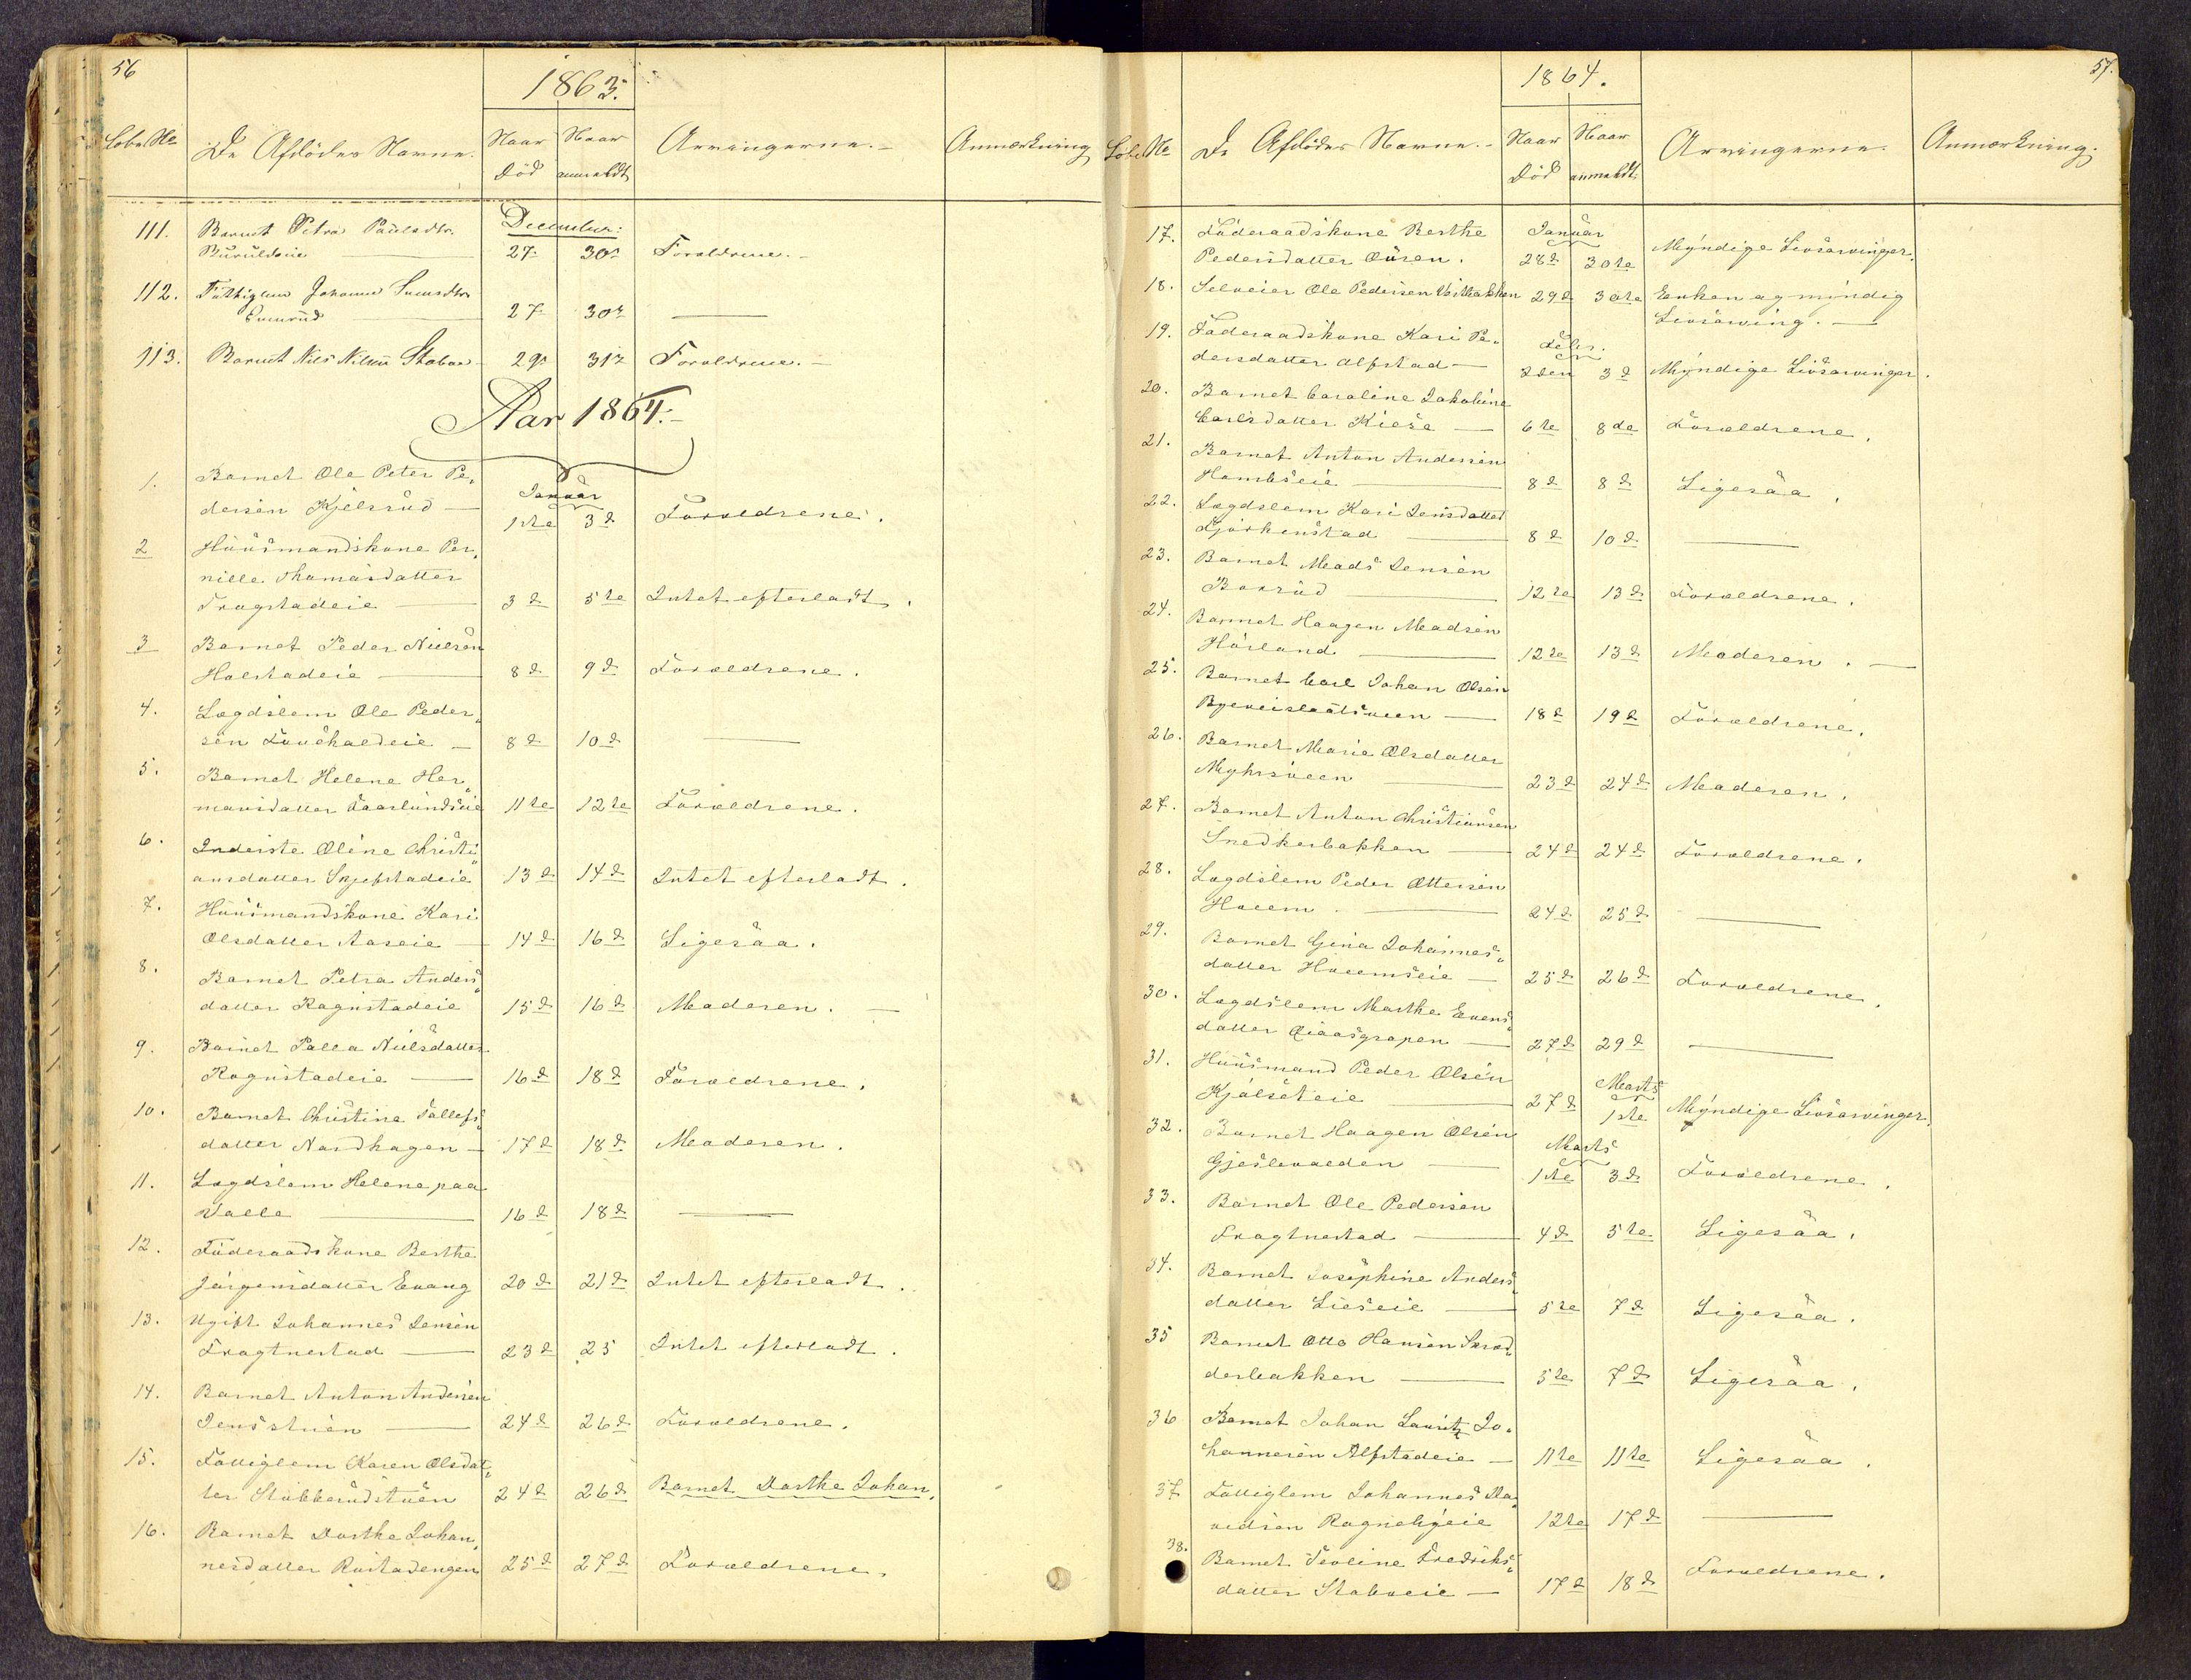 56
1863.
Løbe No
De Afdödes Navne.
Naar Död
Naar anmeldt
Arvingerne.
Anmærkning
December:
111. Barnet Petra Paulsdtr.
27. 30. Forældrene.
112. Fattiglem Johanne
27. 30.
113. Barnet Nils Nilsen Stabo
29. 31. Forældrene.
Aar 1864.
1. Barnet Ole Peter Pe-
Januar
dersen Kjelsrud 1ste 3d Forældrene.
2 Huusmandskone Per-
nille Thomasdatter
Frogstadeie 3d 5te Intet efterladt.
3 Barnet Peder Nielsen
Holstadeie 8d 9d Forældrene.
4. Lægdslem Ole Peder-
sen 8d 10d
5. Barnet Helene Her-
mansdatter 11te 12te Forældrene.
6. Inderste Oline Christi-
ansdatter Skjefstadeie 13d 14d Intet efterladt.
7. Huusmandskone Kari
Olsdatter Aaseie 14d 16d Ligesaa.
8. Barnet Petra Anders-
datter Rognstadeie 15d 16d Moderen.
9. Barnet Palla Nielsdatter
Rognstadeie 16d 18d Forældrene.
10. Barnet Christine Tollefs-
datter Nordhagen 17d 18d Moderen.
11. Lægdslem Helene paa
Valle 16d 18d
12. Föderaadskone Berthe
Jörgensdatter Evang 20d 21d Intet efterladt.
13. Ugift Johannes Jensen
Fragtnestad 23d 25 Intet efterladt.
14. Barnet Anton Andersen
Jensstuen 24d 26d Forældrene.
15. Fattiglem Karen Olsdat-
ter Stubberudstuen 24d 26d Barnet Dorthe Johan,
16. Barnet Dorthe Johan-
nesdatter Rustadengen 25d 27d Forældrene.
57.
1864.
Løbe No
De Afdödes Navne.
Naar Död
Naar anmeldt
Arvingerne.
Anmærkning.
17. Föderaadskone Berthe
Januar
Pedersdatter Ouren. 28d 30te Myndige Livsarvinger.
18. Selveier Ole Pedersen 29d 30te Enken og myndig
Livsarving.
19. Föderaadskone Kari Pe-
Febr.
dersdatter Alfstad 2den 3d Myndige Livsarvinger.
20. Barnet Caroline Jakobine
Carlsdatter Kiese 6te 8de Forældrene.
21. Barnet Anton Andersen
8d 8d Ligesaa.
22. Lægdslem Kari Jensdatter
8d 10d
23. Barnet Mads Jensen
Boxrud 12te 13d Forældrene.
24. Barnet Haagen Madsen
Hörland 12te 13d Moderen.
25. Barnet Carl Johan Olsen
18d 19d Forældrene.
26. Barnet Marie Olsdatter
Myhrsveen 23d 24d Moderen.
27. Barnet Anton Christiansen
Snedkerbakken 24d 24d Forældrene.
28. Lægdslem Peder Ottersen
24d 25d
29. Barnet Gina Johannes-
datter 25d 26d Forældrene.
30. Lægdslem Marthe Evens-
datter 27d 29d
31. Huusmand Peder Olsen
Marts
Kjölseteie 27d 1ste Myndige Livsarvinger.
32. Barnet Haagen Olsen
Marts
1ste 3d Forældrene.
33. Barnet Ole Pedersen
Fragtnestad 4d 5te Ligesaa.
34. Barnet Josephine Anders-
datter Lieseie 5te 7d Ligesaa.
35 Barnet Otto Hansen Skræd-
derbakken 5te 7d Ligesaa.
36 Barnet Johan Lauritz Jo-
hannesen Alfstadeie 11te 11te Ligesaa.
37 Fattiglem Johannes Da-
vidsen 12te 17d
38. Barnet Teoline Fredriks-
datter Staboeie 17d 18d Forældrene.